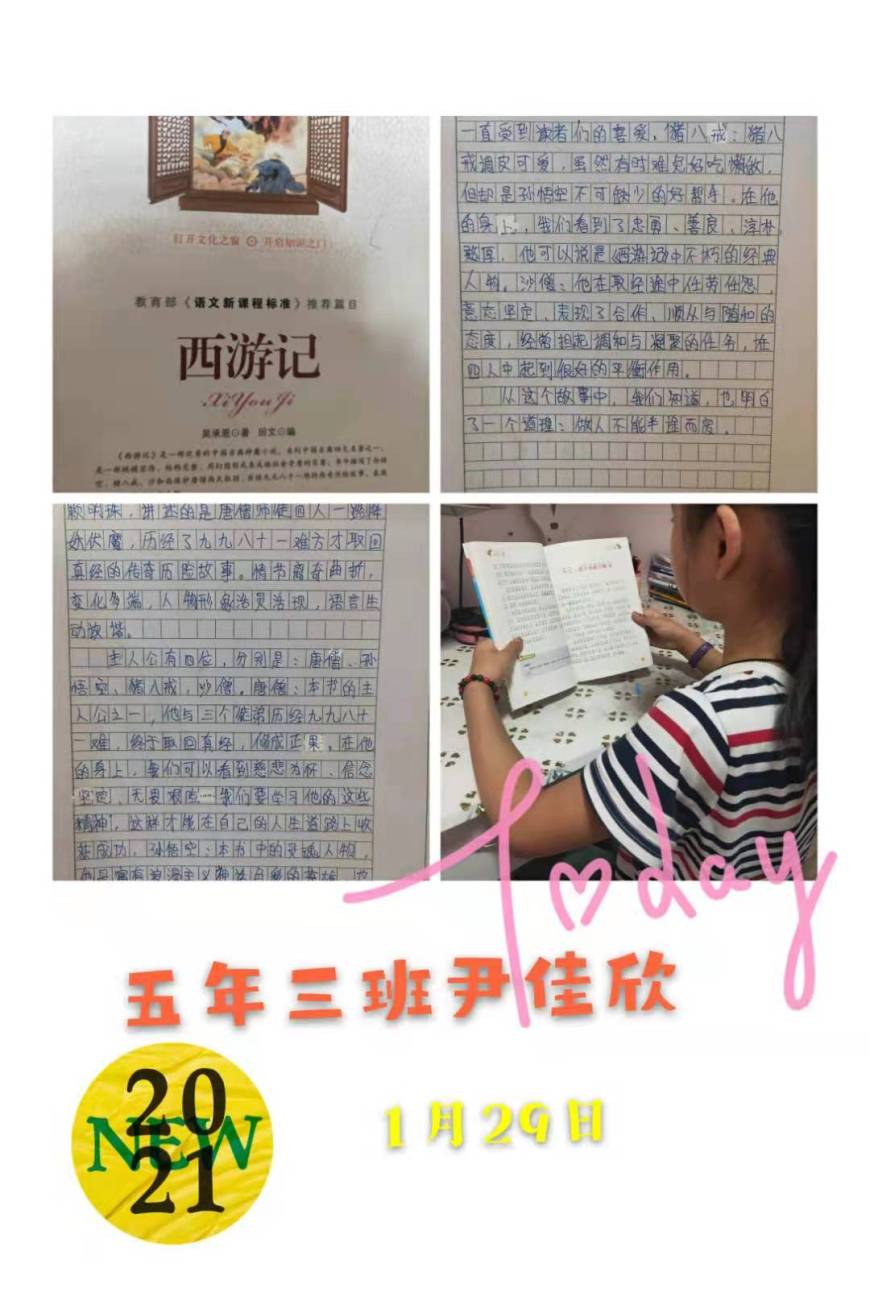 打开文化之窗 开启知识之门
教育部《语文新课程标准》推荐篇目
西游记
XiYouJi
吴承恩 著 田文 编
一直受到读者们的喜爱。猪八戒:猪八
戒调皮可爱,虽然有时难免好吃懒做,
但却是孙悟空不可缺少的好帮手。在他
的身上,我们看到了忠勇、善良、淳朴、
憨厚,他可以说是《西游记》中不朽的经典
人物。沙僧:他在取经途中任劳任怨,
意志坚定,表现了合作、顺从与随和的
态度,经常担起调和与凝聚的任务,在
四人中起到很好的平衡作用。
从这个故事中,我们知道,也明白
了一个道理:做人不能半途而废。
颗明珠,讲述的是唐僧师徒四人一路降
妖伏魔,历经了九九八十一难方才取回
真经的传奇历险故事。情节离奇曲折,
变化多端,人物形象活灵活现,语言生
动诙谐。
主人公有四位,分别是:唐僧、孙
悟空、猪八戒,沙僧。唐僧:本书的主
人公之一,他与三个徒弟历经九九八十
一难,终于取回真经,修成正果。在他
的身上,我们可以看到慈悲为怀、信念
坚定、无畏艰险……我们要学习他的这些
精神,这样才能在自己的人生道路上收
获成功。孙悟空:本书中的灵魂人物,
Today
五年三班尹佳欣
2021
NEW
1月29日